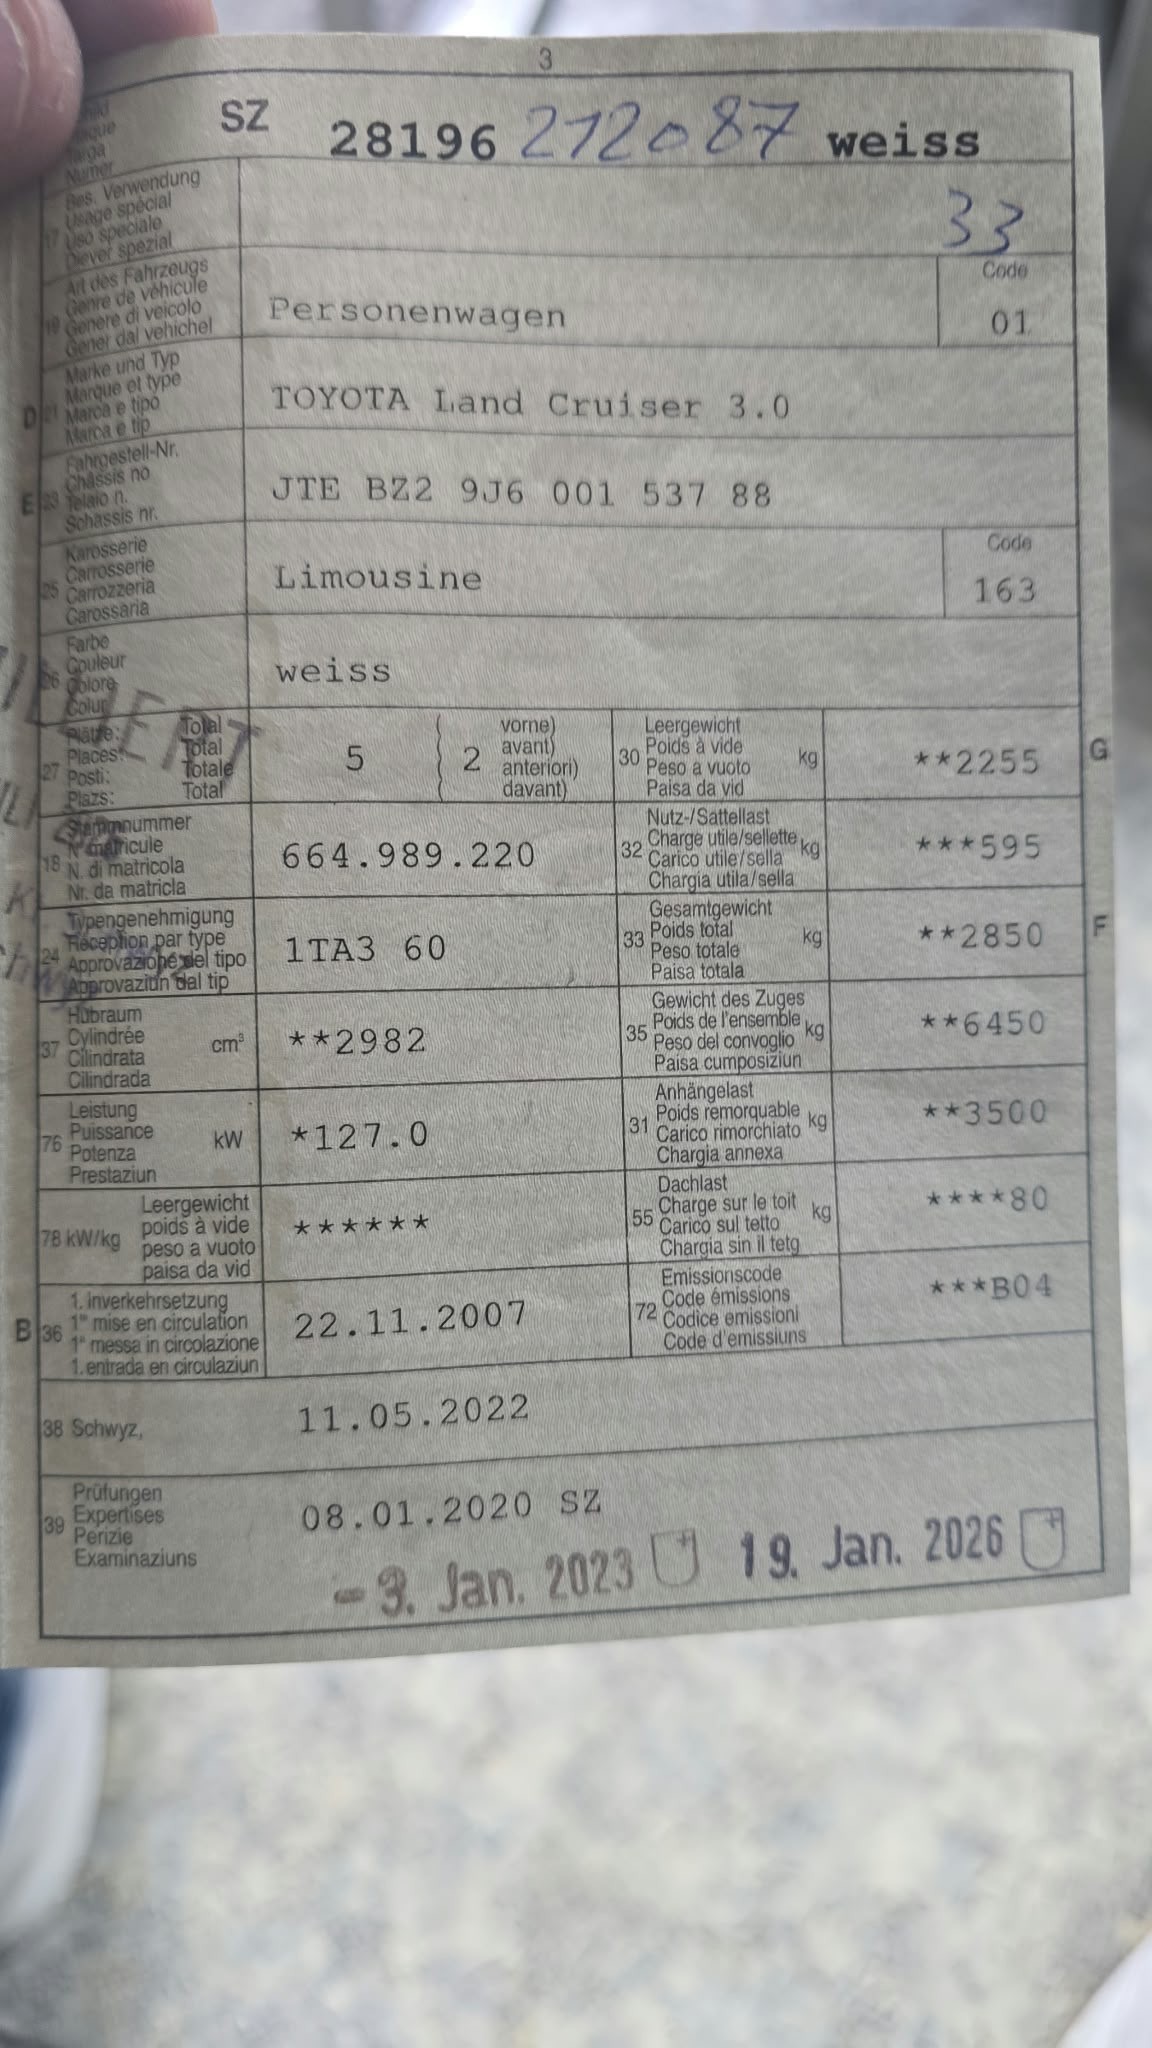 3
SZ 28196 212087 weiss
Numer
33
Bes. Verwendung
Usage spécial
17 Uso speciale
Diever spezial
Art des Fahrzeugs
Genre de véhicule
19 Genere di veicolo
Gener dal vehichel
Personenwagen
Code
01
Marke und Typ
Marque et type
D 21 Marca e tipo
Marca e tip
TOYOTA Land Cruiser 3.0
Fahrgestell-Nr.
Châssis no
E 23 Telaio n.
Schassis nr.
JTE BZ2 9J6 001 537 88
Karosserie
Carrosserie
25 Carrozzeria
Carossaria
Limousine
Code
163
Farbe
Couleur
26 Colore
Colur
weiss
Plätze: Total
Places: Total
27 Posti: Totale
Plazs: Total
5 ( 2 vorne)
avant)
anteriori)
davant)
Leergewicht
30 Poids à vide kg
Peso a vuoto
Paisa da vid
**2255
G
Stammnummer
N° matricule
18 N. di matricola
Nr. da matricla
664.989.220
Nutz-/Sattellast
32 Charge utile/sellette kg
Carico utile/sella
Chargia utila/sella
***595
Typengenehmigung
24 Réception par type
Approvazione del tipo
Approvaziun dal tip
1TA3 60
Gesamtgewicht
33 Poids total kg
Peso totale
Paisa totala
**2850
F
Hubraum
37 Cylindrée cm³
Cilindrata
Cilindrada
**2982
Gewicht des Zuges
35 Poids de l'ensemble kg
Peso del convoglio
Paisa cumposiziun
**6450
Leistung
76 Puissance kW
Potenza
Prestaziun
*127.0
Anhängelast
31 Poids remorquable kg
Carico rimorchiato
Chargia annexa
**3500
Leergewicht
78 kW/kg poids à vide
peso a vuoto
paisa da vid
******
Dachlast
55 Charge sur le toit kg
Carico sul tetto
Chargia sin il tetg
****80
1. Inverkehrsetzung
B 36 1re mise en circulation
1a messa in circolazione
1. entrada en circulaziun
22.11.2007
Emissionscode
72 Code émissions
Codice emissioni
Code d'emissiuns
***B04
38 Schwyz, 11.05.2022
Prüfungen
39 Expertises
Perizie
Examinaziuns
08.01.2020 SZ
- 3. Jan. 2023 19. Jan. 2026